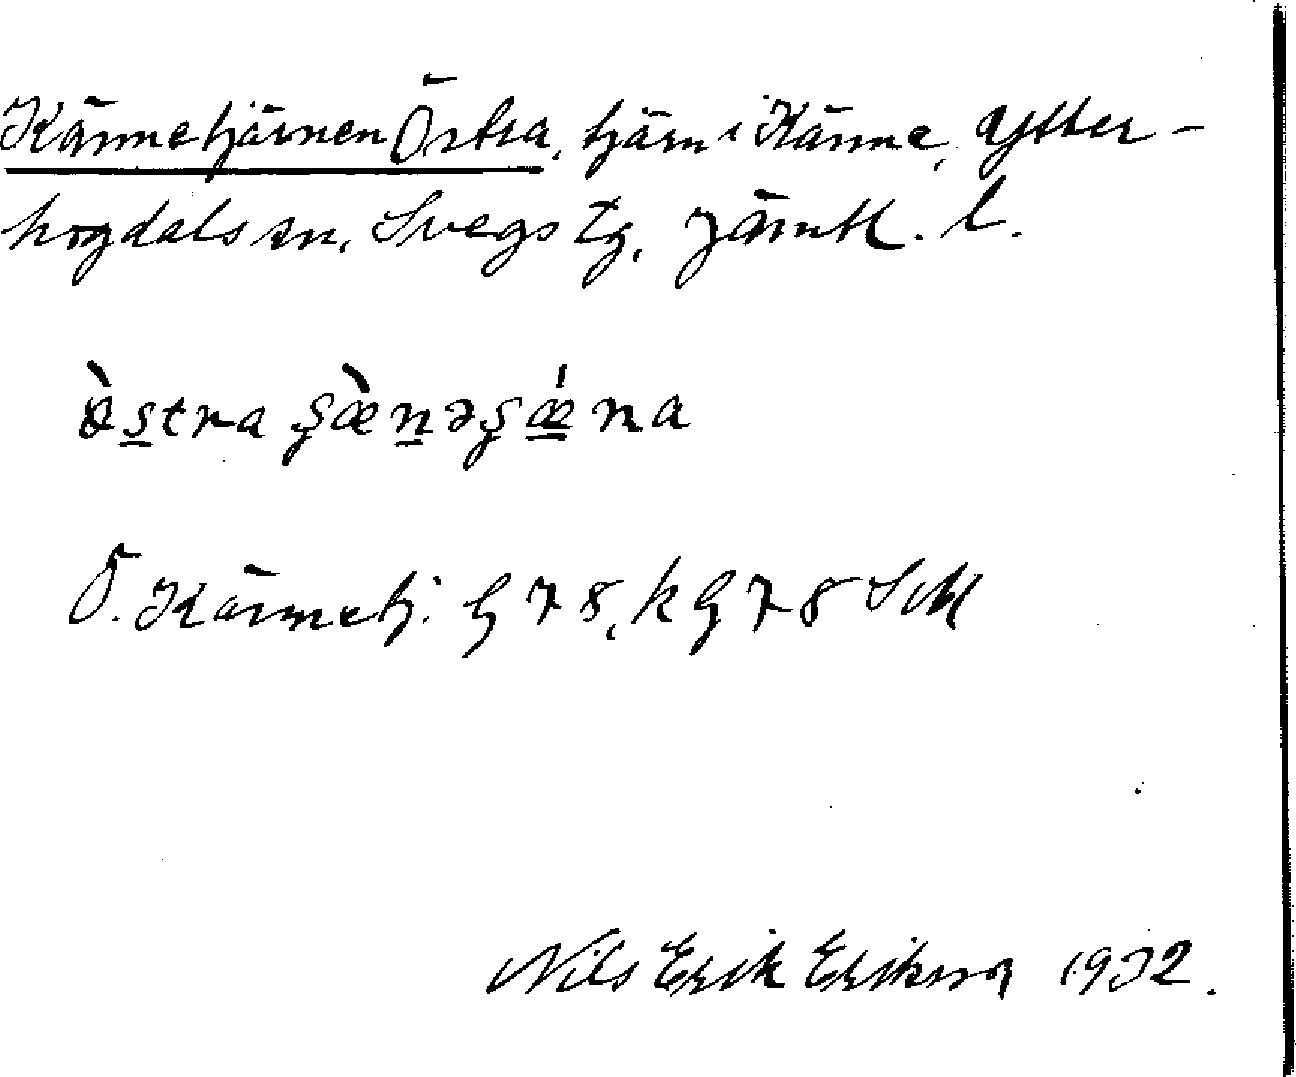 Kännetjärnen Östra, tjärn i Känne, Ytter-
hogdals sn, Svegs tg, Jämtl. l.
ὰs̲tra ʂæ̀n̲əʂǽ̲na
Ö. Kännetj. G 78, k G 78 SM
Nils Erik Erikson 1932.